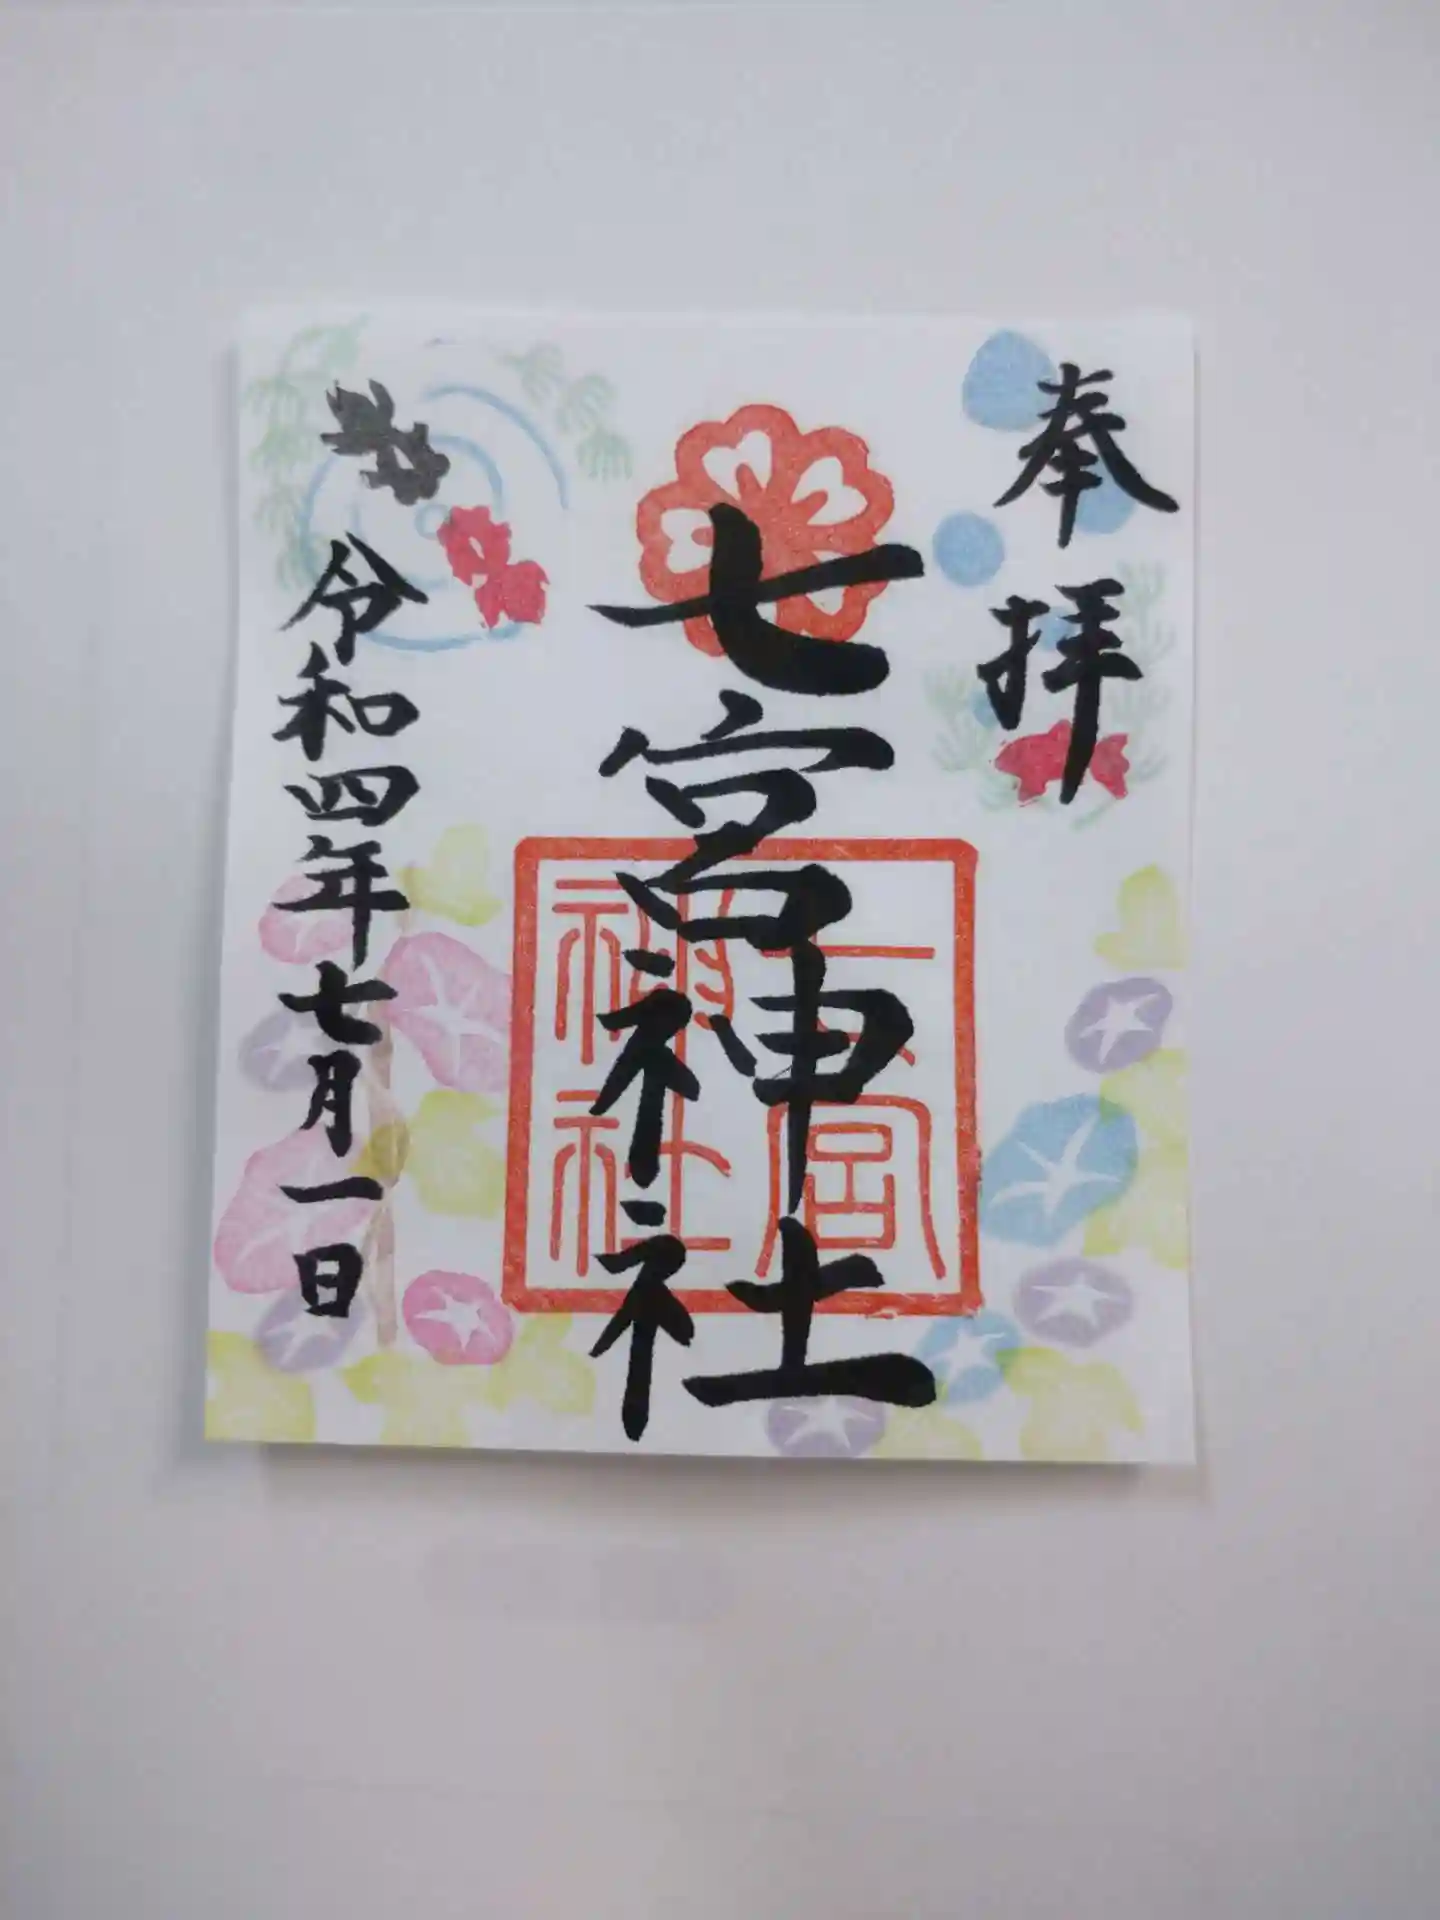 奉拝
七宮神社
七宮
神社
令和四年七月一日